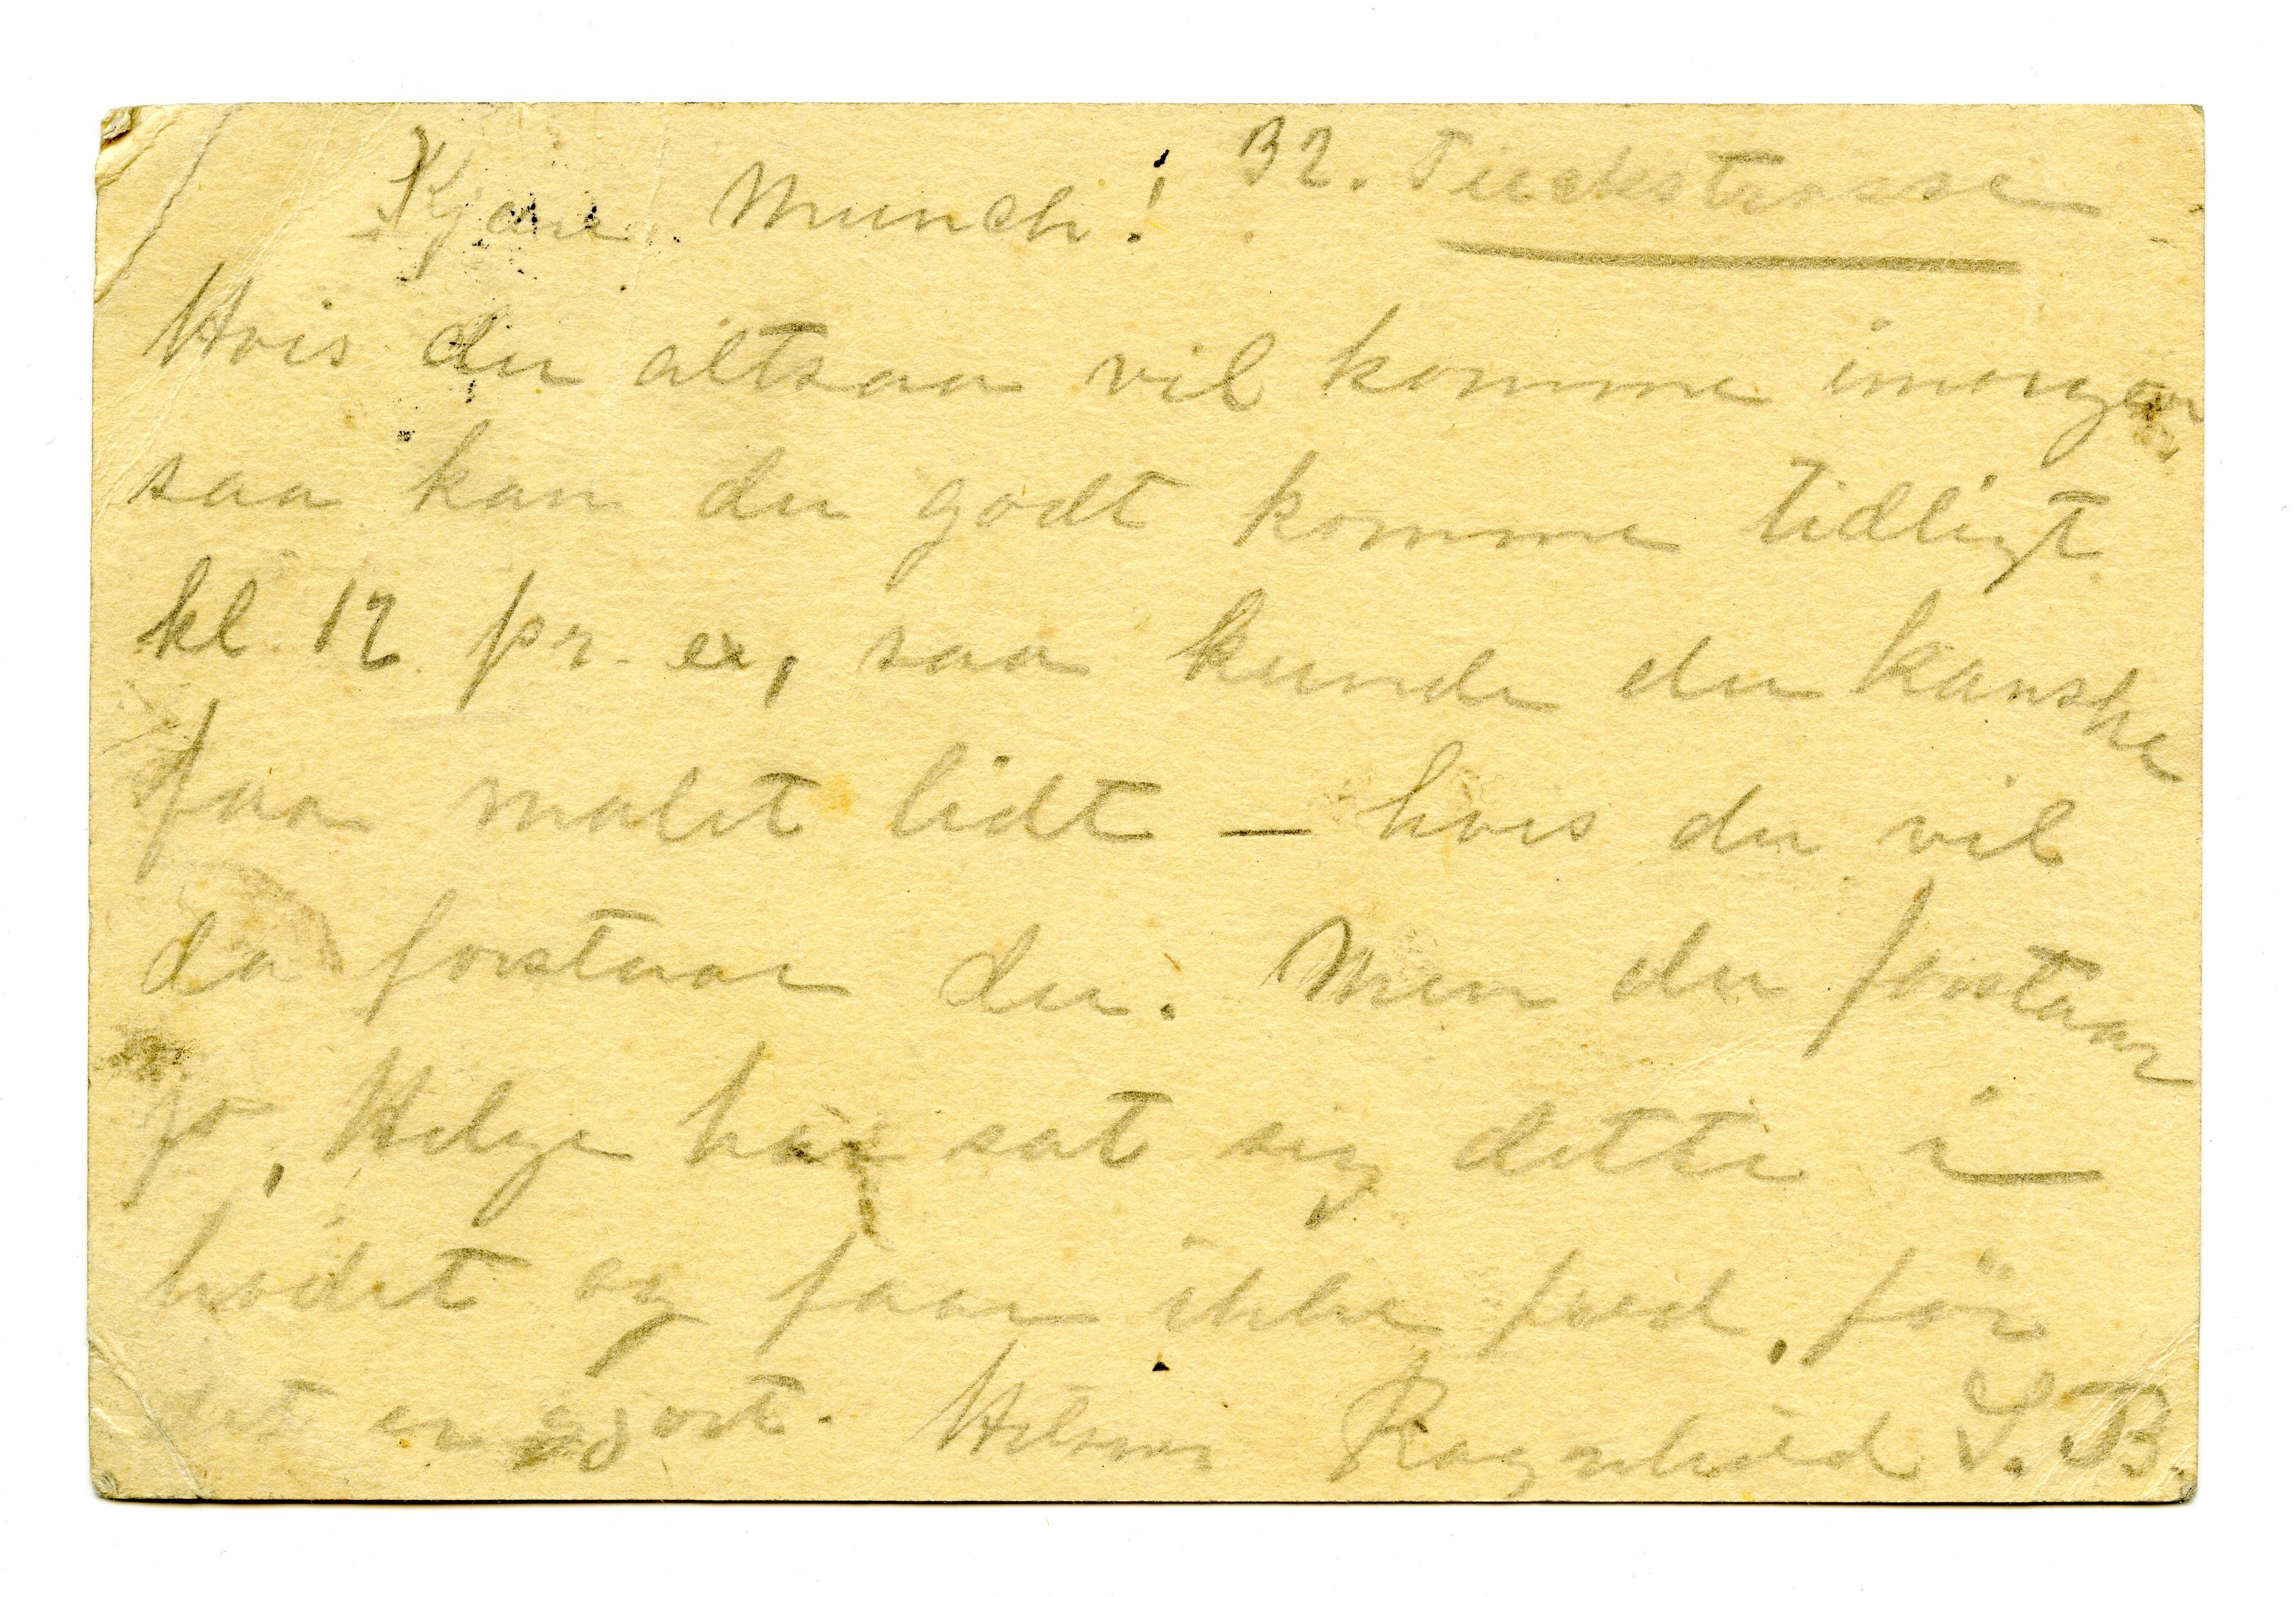 Kjære Munch! 32. Tieckstrasse
Hvis du altsaa vil komme imorgen
saa kan du godt komme tidligt
kl. 12 pr. ex, saa kunde du kanske
faa malet lidt – hvis du vil
da forstaar du. Men du forstaar
jo, Helge har sat sig dette i
hodet og faar ikke fred, för
det er gjort. Hilsen Ragnhild S. B.